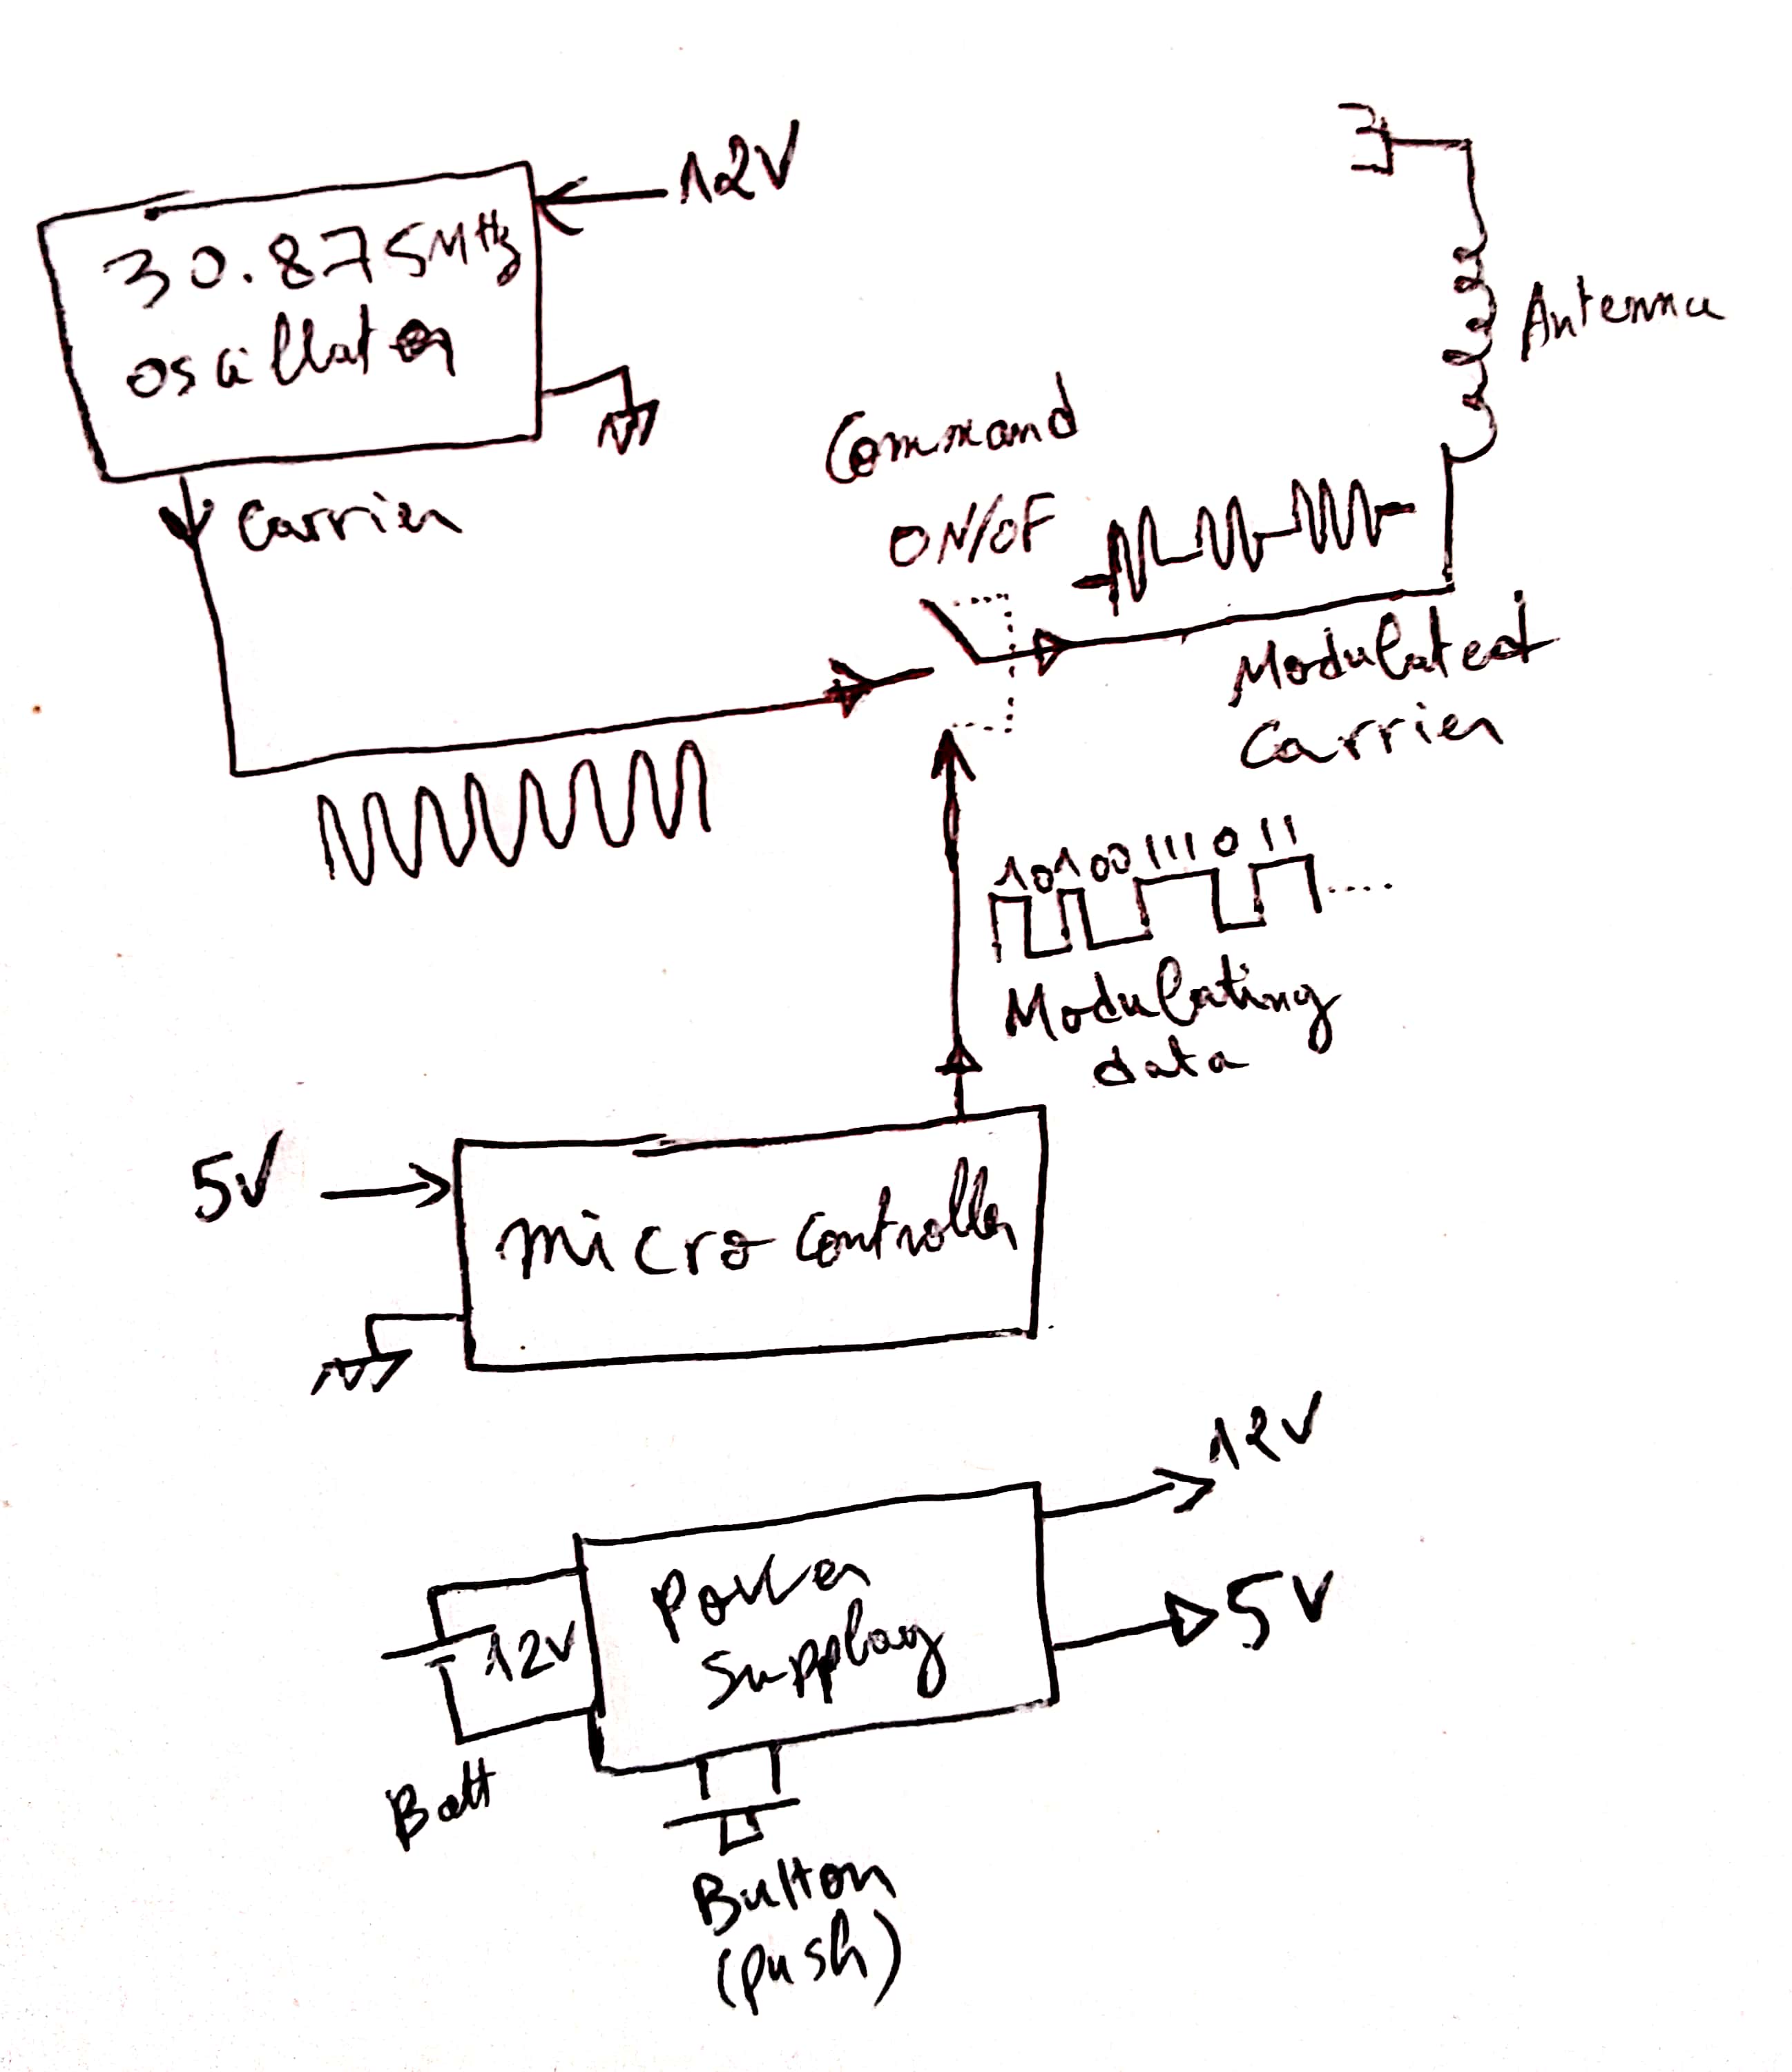 12V
30.875MHz
oscillator
Carrier
Antenna
Command
ON/OF
Modulated
Carrier
10100111011....
Modulating
data
5V
micro controller
12V
Power
Supplay
5V
12V
Batt
Button
(push)